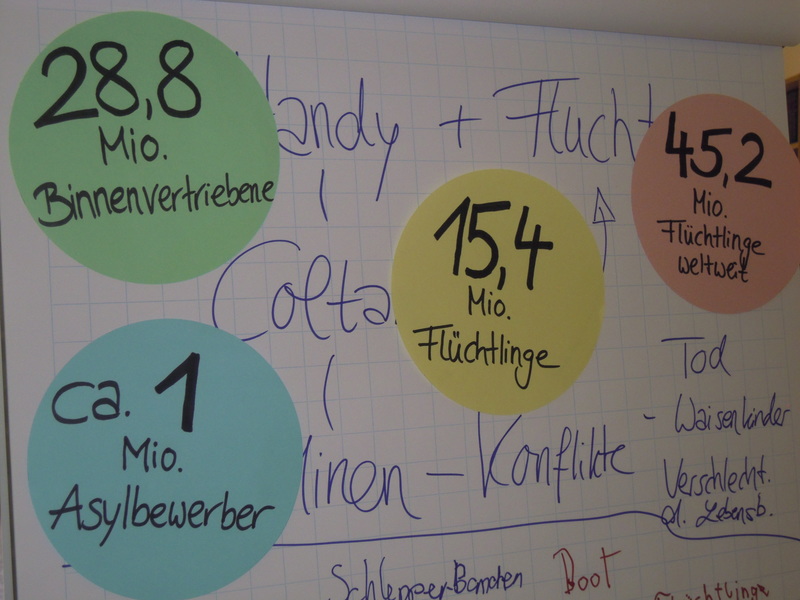 28,8
Mio.
Binnenvertriebene
andy + Flucht
45,2
Mio.
Flüchtlinge
weltweit
15,4
Mio.
Flüchtlinge
Colta
ca. 1
Mio.
Asylbewerber
inen - Konflikte
Tod
- Waisenkinder
Verschlecht.
d. Lebensb.
Boot